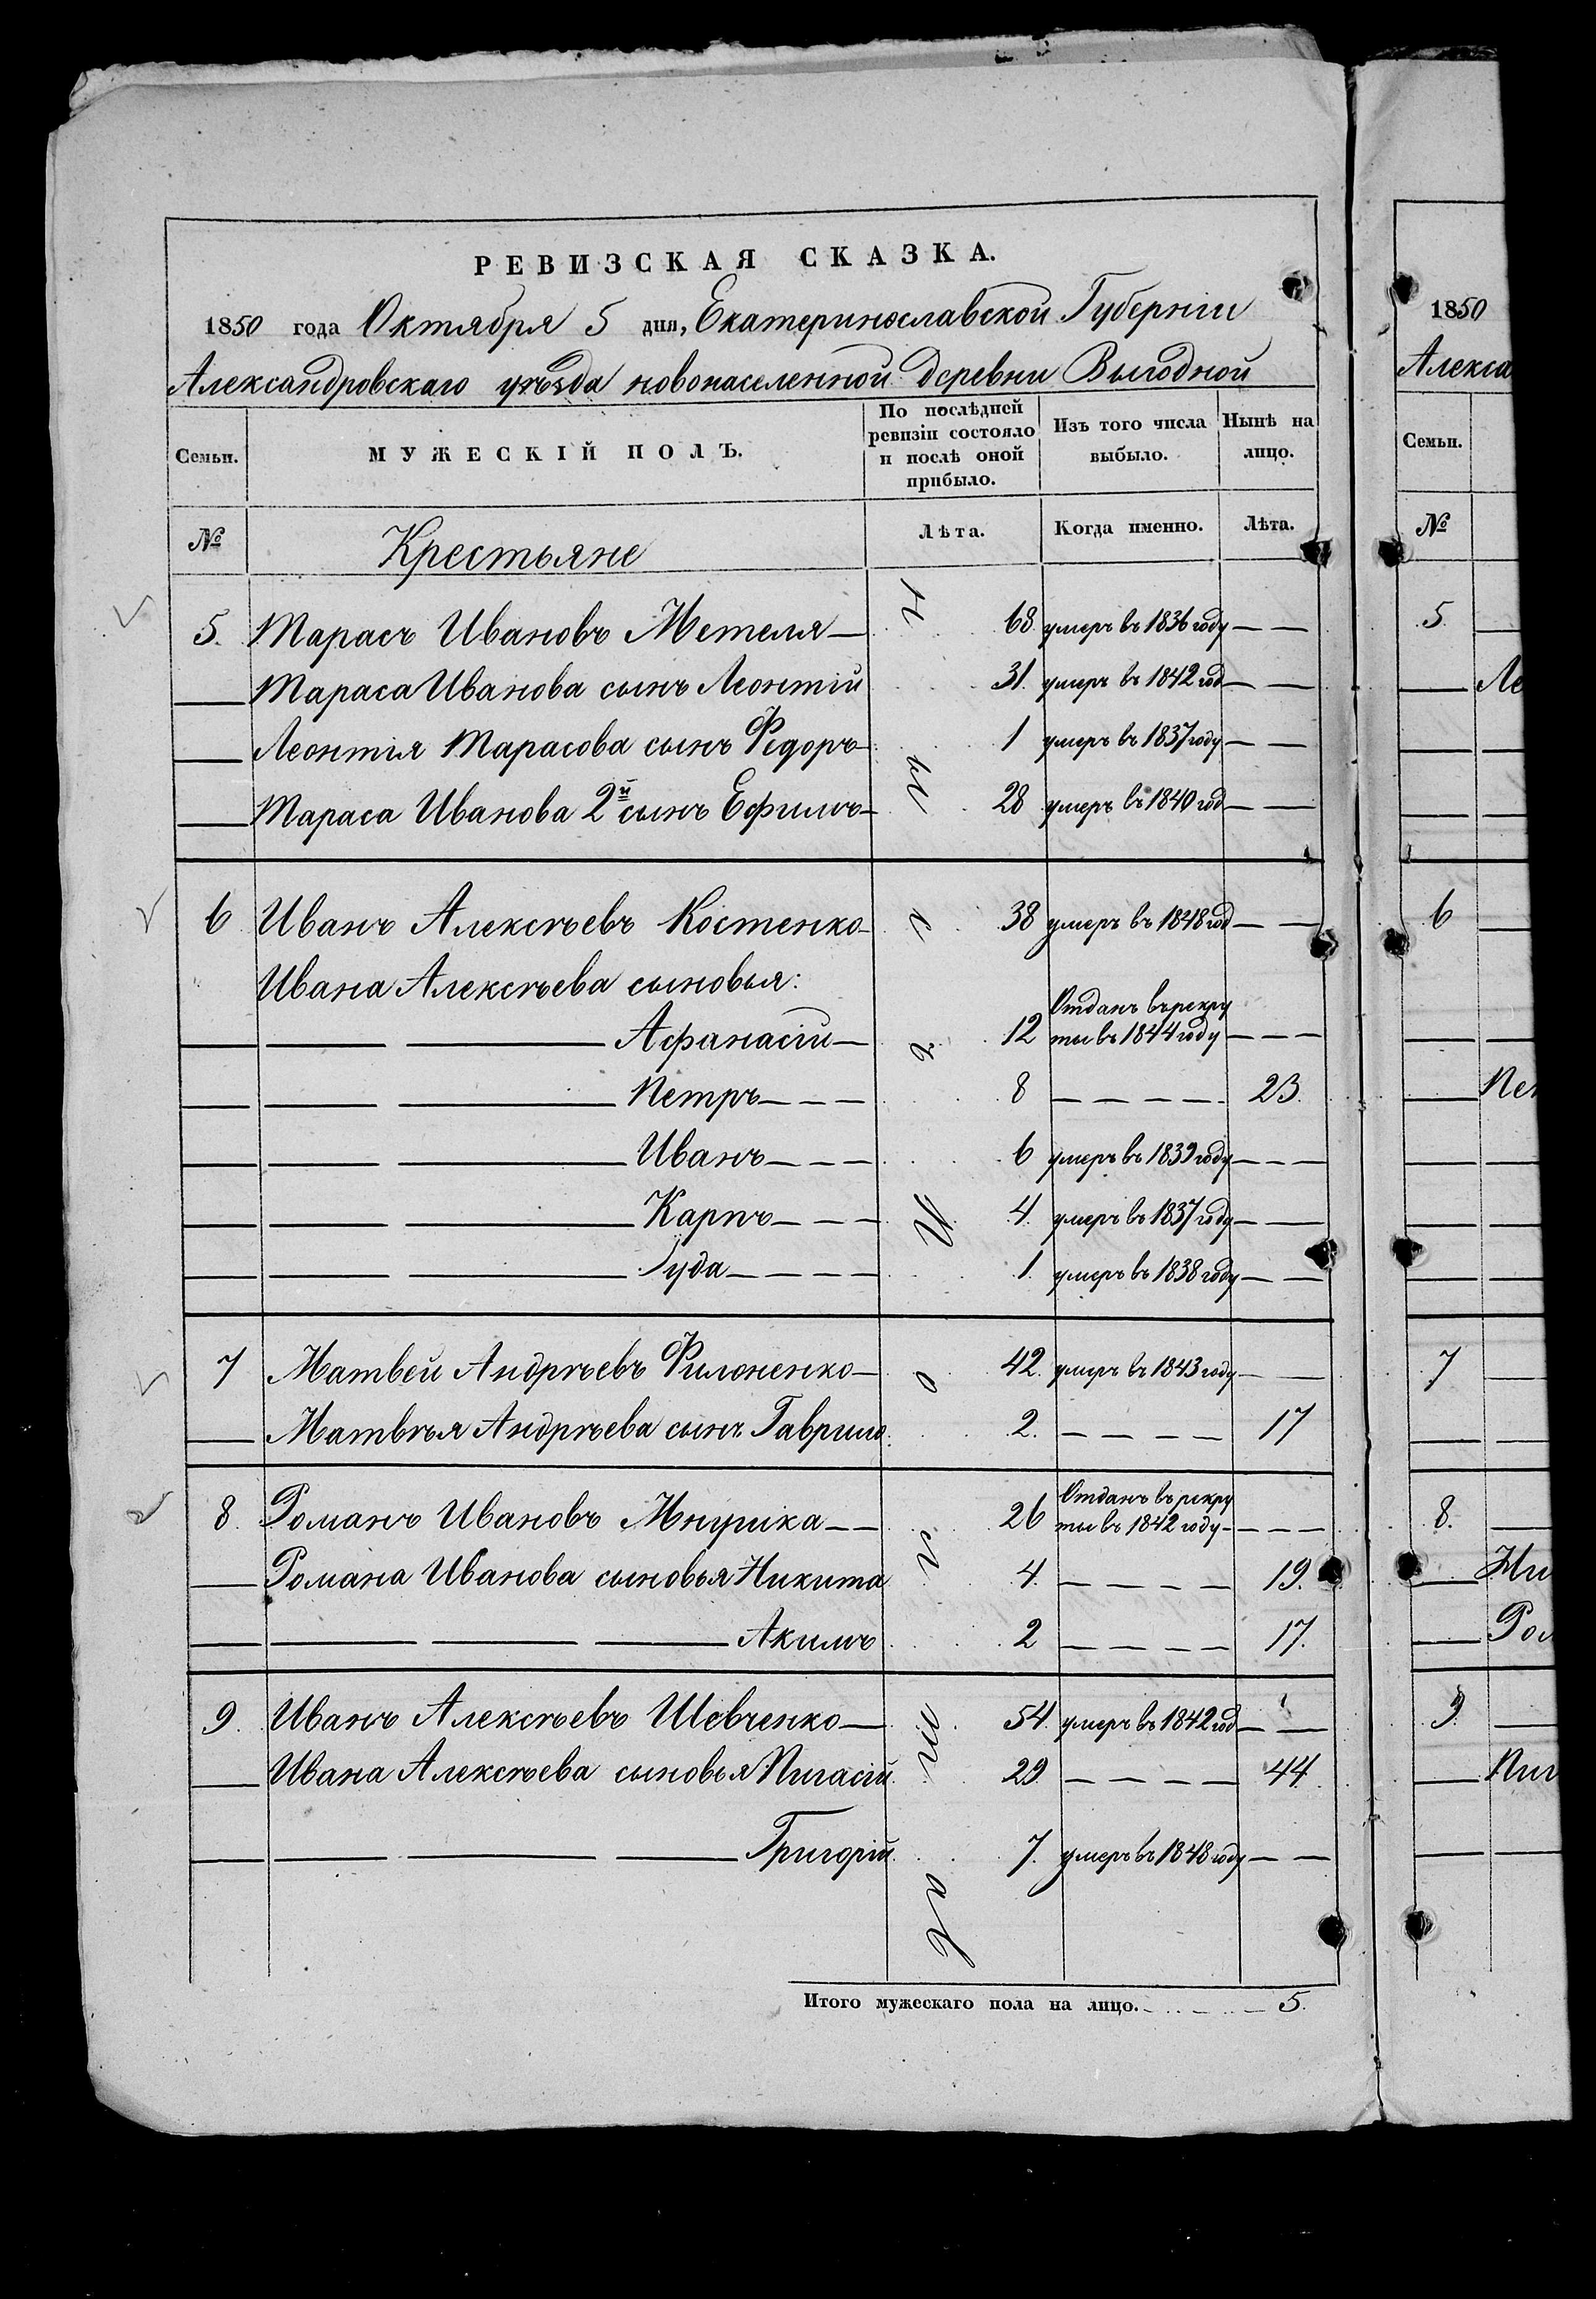 РЕВИЗСКАЯ СКАЗКА.
1850 года Октября 5 дня, Екатеринославской Губерніи
Александровскаго уѣзда новонаселенной деревни Выгодной
Семьи. МУЖЕСКІЙ ПОЛЪ. По послѣдней ревизіи состояло и послѣ оной прибыло. Изъ того числа выбыло. Нынѣ на лицо.
№ Крестьяне Лѣта. Когда именно. Лѣта.
5. Тарасъ Ивановъ Метеля 68 умеръ въ 1836 году
Тараса Иванова сынъ Леонтій 31. умеръ въ 1842 год
Леонтія Тарасова сынъ Федоръ 1 умеръ въ 1837 году
Тараса Иванова 2й сынъ Ефимъ 28 умеръ въ 1840 год
6 Иванъ Алексѣевъ Костенко 38 умеръ въ 1848 год
Ивана Алексѣева сыновья:
Афанасій 12 Отданъ въ рекру
ты въ 1844 году
Петръ 8 23.
Иванъ 6 умеръ въ 1839 году
Карпъ 4. умеръ въ 1837 году
Іуда 1. умеръ въ 1838 году
7 Матвей Андрѣевъ Филоненко 42. умеръ въ 1843 году
Матвѣя Андрѣева сынъ Гаврило 2. 17
8. Романъ Ивановъ Мнушка 26 Отданъ въ рекру
ты въ 1842 году
Романа Иванова сыновья Никита 4. 19.
Акимъ 2 17.
9. Иванъ Алексѣевъ Шевченко 54. умеръ въ 1842 год
Ивана Алексѣева сыновья Пигасій 29. 44.
Григорій 7. умеръ въ 1848 году
Итого мужескаго пола на лицо. 5.
1850
Алекса
Семьи.
№
5.
Ле
6
Пет
7
8.
Ни
Ром
9.
Пиг